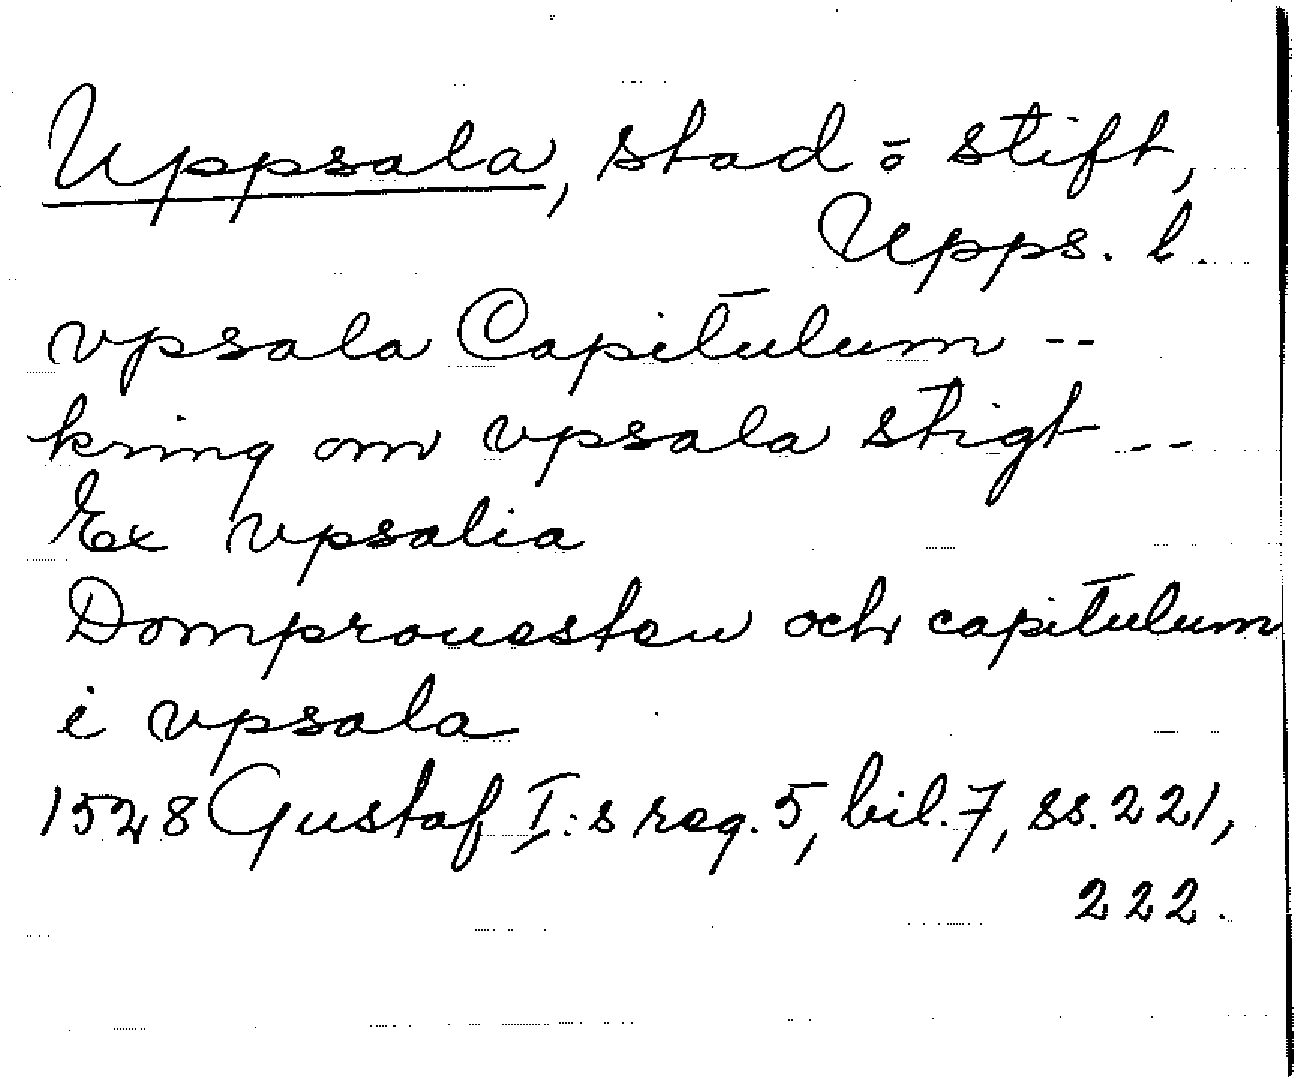 Uppsala, stad o stift,
Upps. l.
vpsala Capitulum --
kring om vpsala stigt --
Ex vpsalia
Domprouesten och capitulum
i vpsala
1528 Gustaf I:s reg. 5, bil. 7, ss. 221,
222.